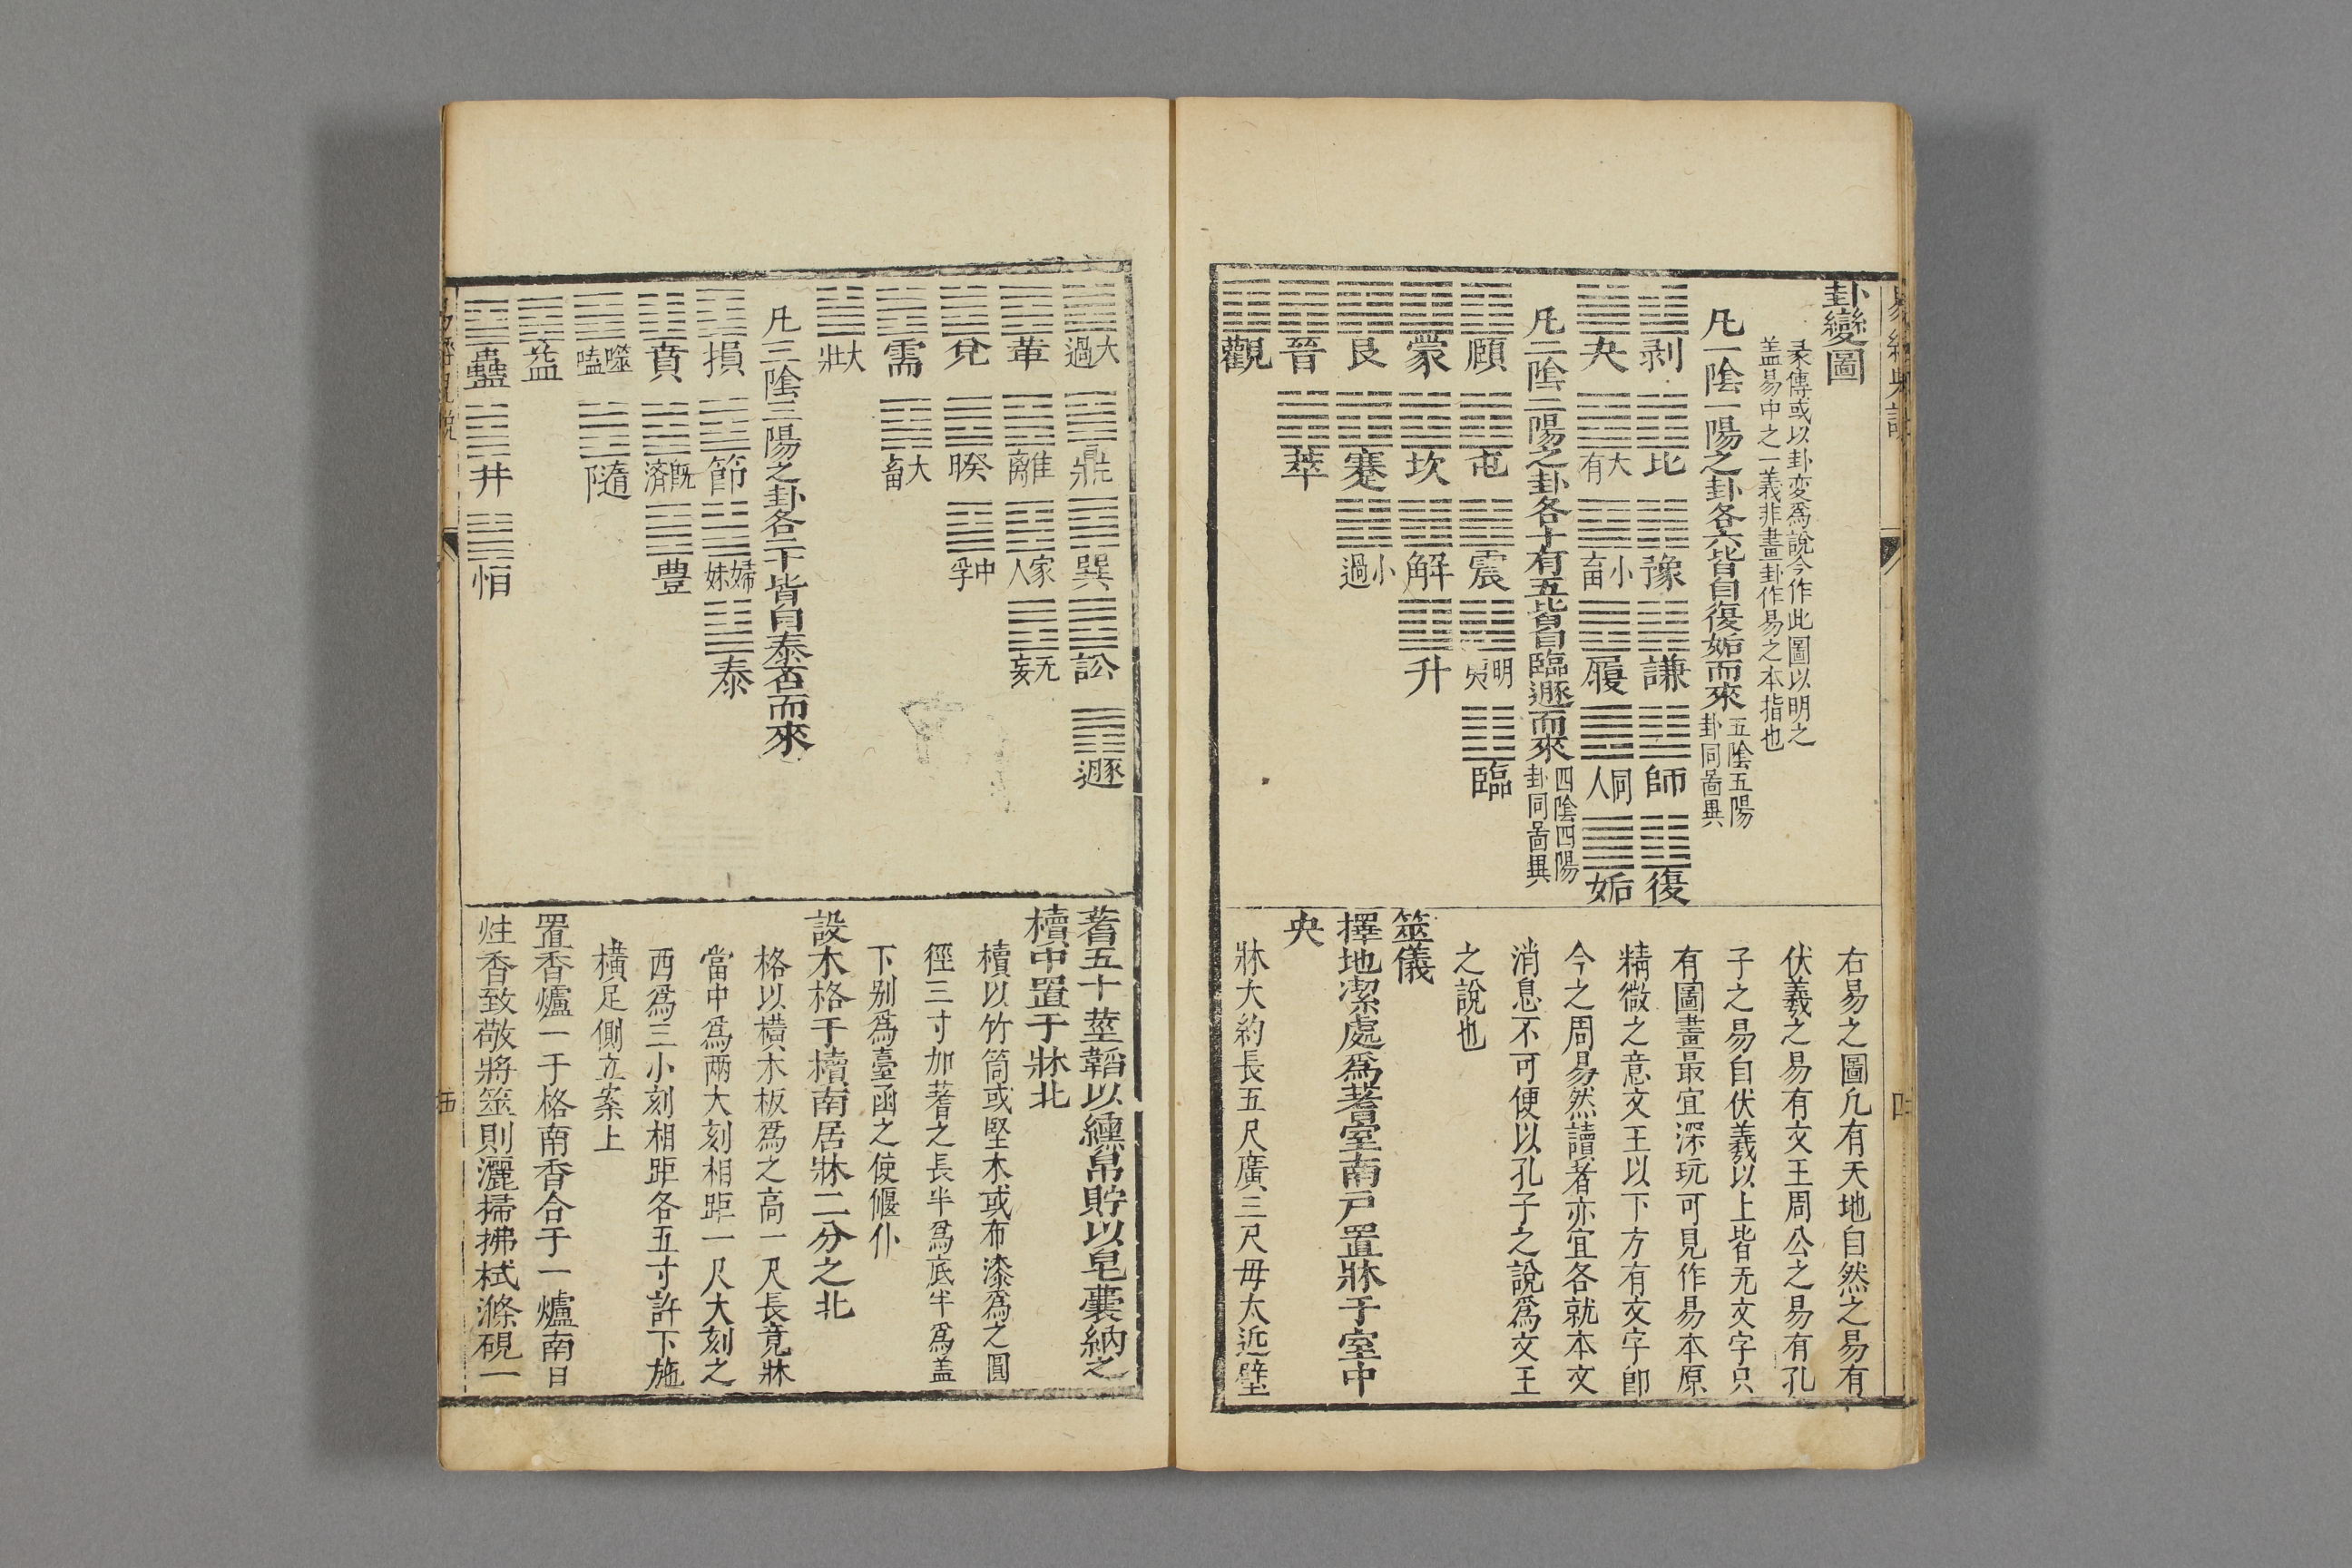 卦變圖
彖傳或以卦変爲說今作此圖以明之
盖易中之一義非畫卦作易之本指也
凡一陰一陽之卦各六皆自復姤而來
五陰五陽
卦同啚異
剥 比 豫 謙 師 復
夬 大有 小畜 履 同人 姤
凡二陰二陽之卦各十有五皆自臨遯而來
四陰四陽
卦同啚異
頤 屯 震 明夷 臨
蒙 坎 解 升
艮 蹇 小過
晉 萃
觀
右易之圖九有天地自然之易有
伏羲之易有文王周公之易有孔
子之易自伏羲以上皆无文字只
有圖畫最宜深玩可見作易本原
精微之意文王以下方有文字即
今之周易然讀者亦宜各就本文
消息不可便以孔子之說爲文王
之說也
筮儀
擇地潔處爲蓍室南戶置牀于室中
央
牀大約長五尺廣三尺毋太近壁
四
大過 鼎 巽 訟 遯
革 離 家人 无妄
兌 睽 中孚
需 大畜
大壯
凡三陰三陽之卦各二十皆自泰否而來
損 節 歸妹 泰
賁 既濟 豊
噬嗑 隨
益
蠱 井 恒
蓍五十莖韜以纁帛貯以皂囊納之
櫝中置于牀北
櫝以竹筒或堅木或布漆爲之圓
徑三寸如蓍之長半爲底半爲盖
下别爲臺函之使偃仆
設木格于櫝南居牀二分之北
格以橫木板爲之高一尺長竟牀
當中爲兩大刻相距一尺大刻之
西爲三小刻相距各五寸許下施
橫足側立案上
置香爐一于格南香合于一爐南日
炷香致敬將筮則灑掃拂拭滌硯一
五